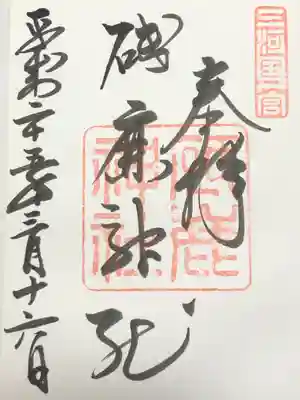 三河壹宮
奉拝
砥鹿神社
砥鹿神社
平成二十五年三月十六日